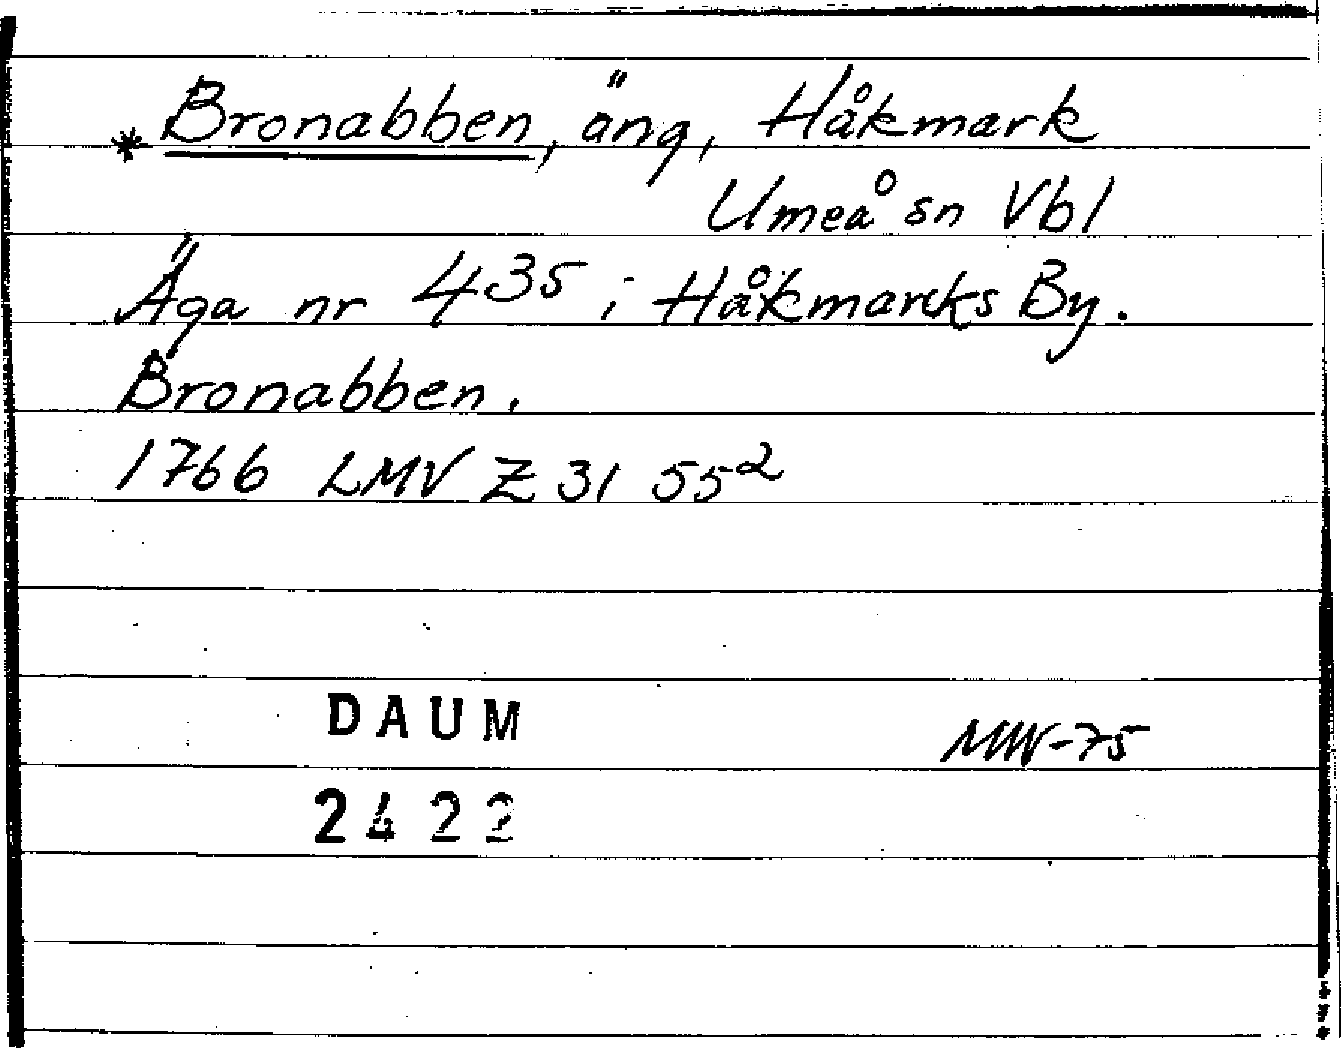 * Bronabben, äng, Håkmark
Umeå sn Vbl
Äga nr 435 i Håkmarcks By.
Bronabben.
1766 LMV Z 31 55²
DAUM
MW-75
2422